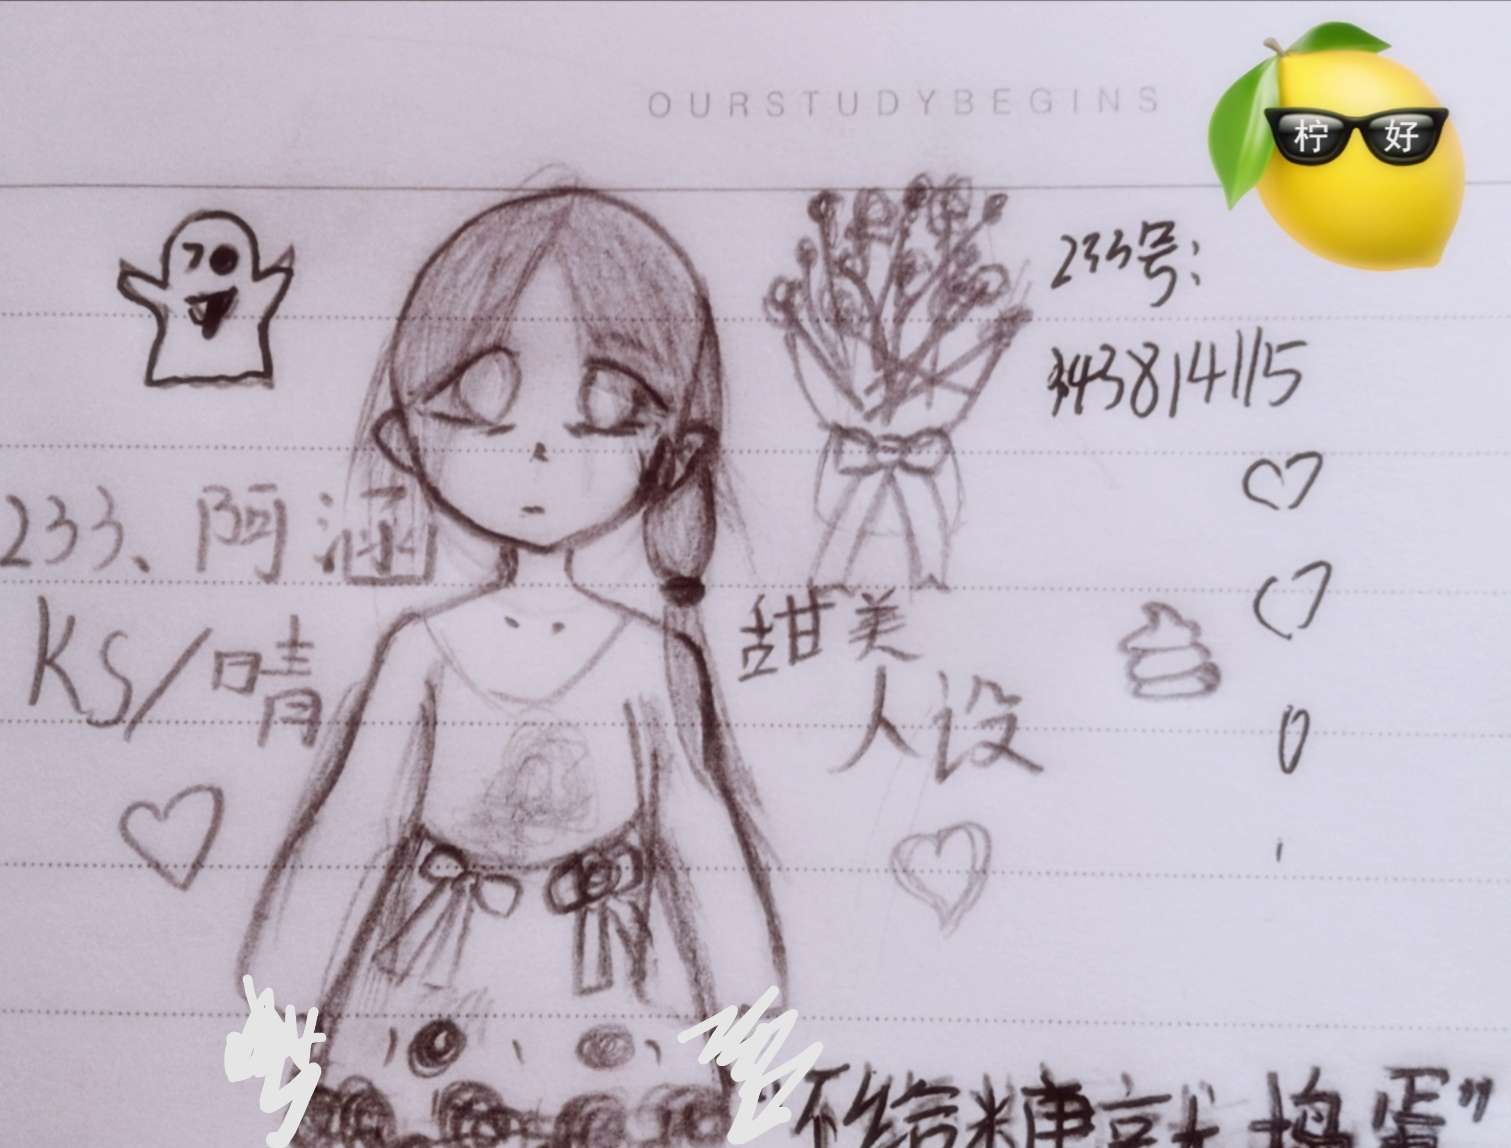 OURSTUDYBEGINS
柠 好
233号:
3438141115
233、阿涵
KS/晴
甜美
人设
不给糖就捣蛋"